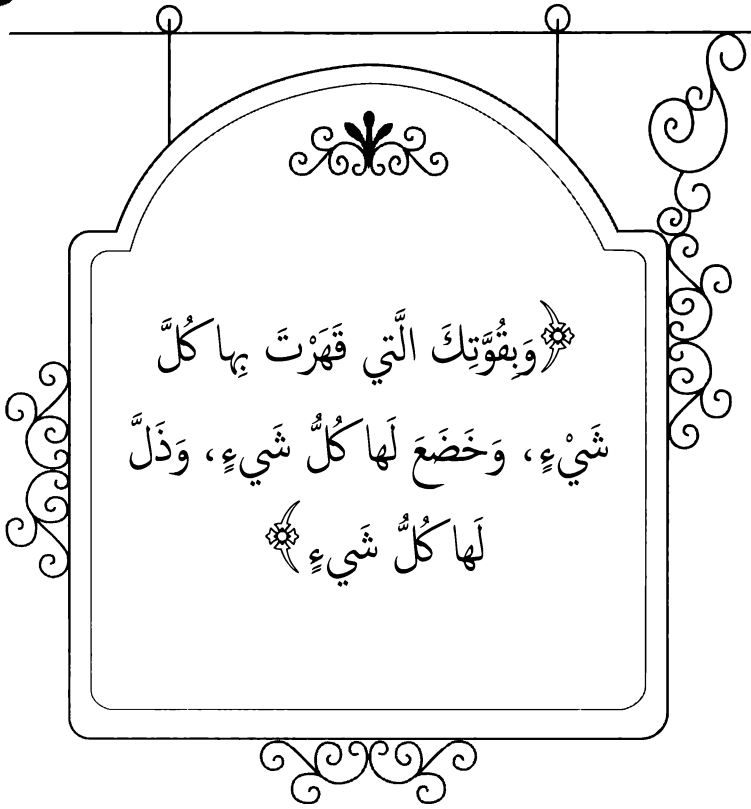 ﴿وَبِقُوَّتِكَ الَّتي قَهَرْتَ بِها كُلَّ
شَيْءٍ، وَخَضَعَ لَها كُلُّ شَيءٍ، وَذَلَّ
لَها كُلُّ شَيءٍ﴾